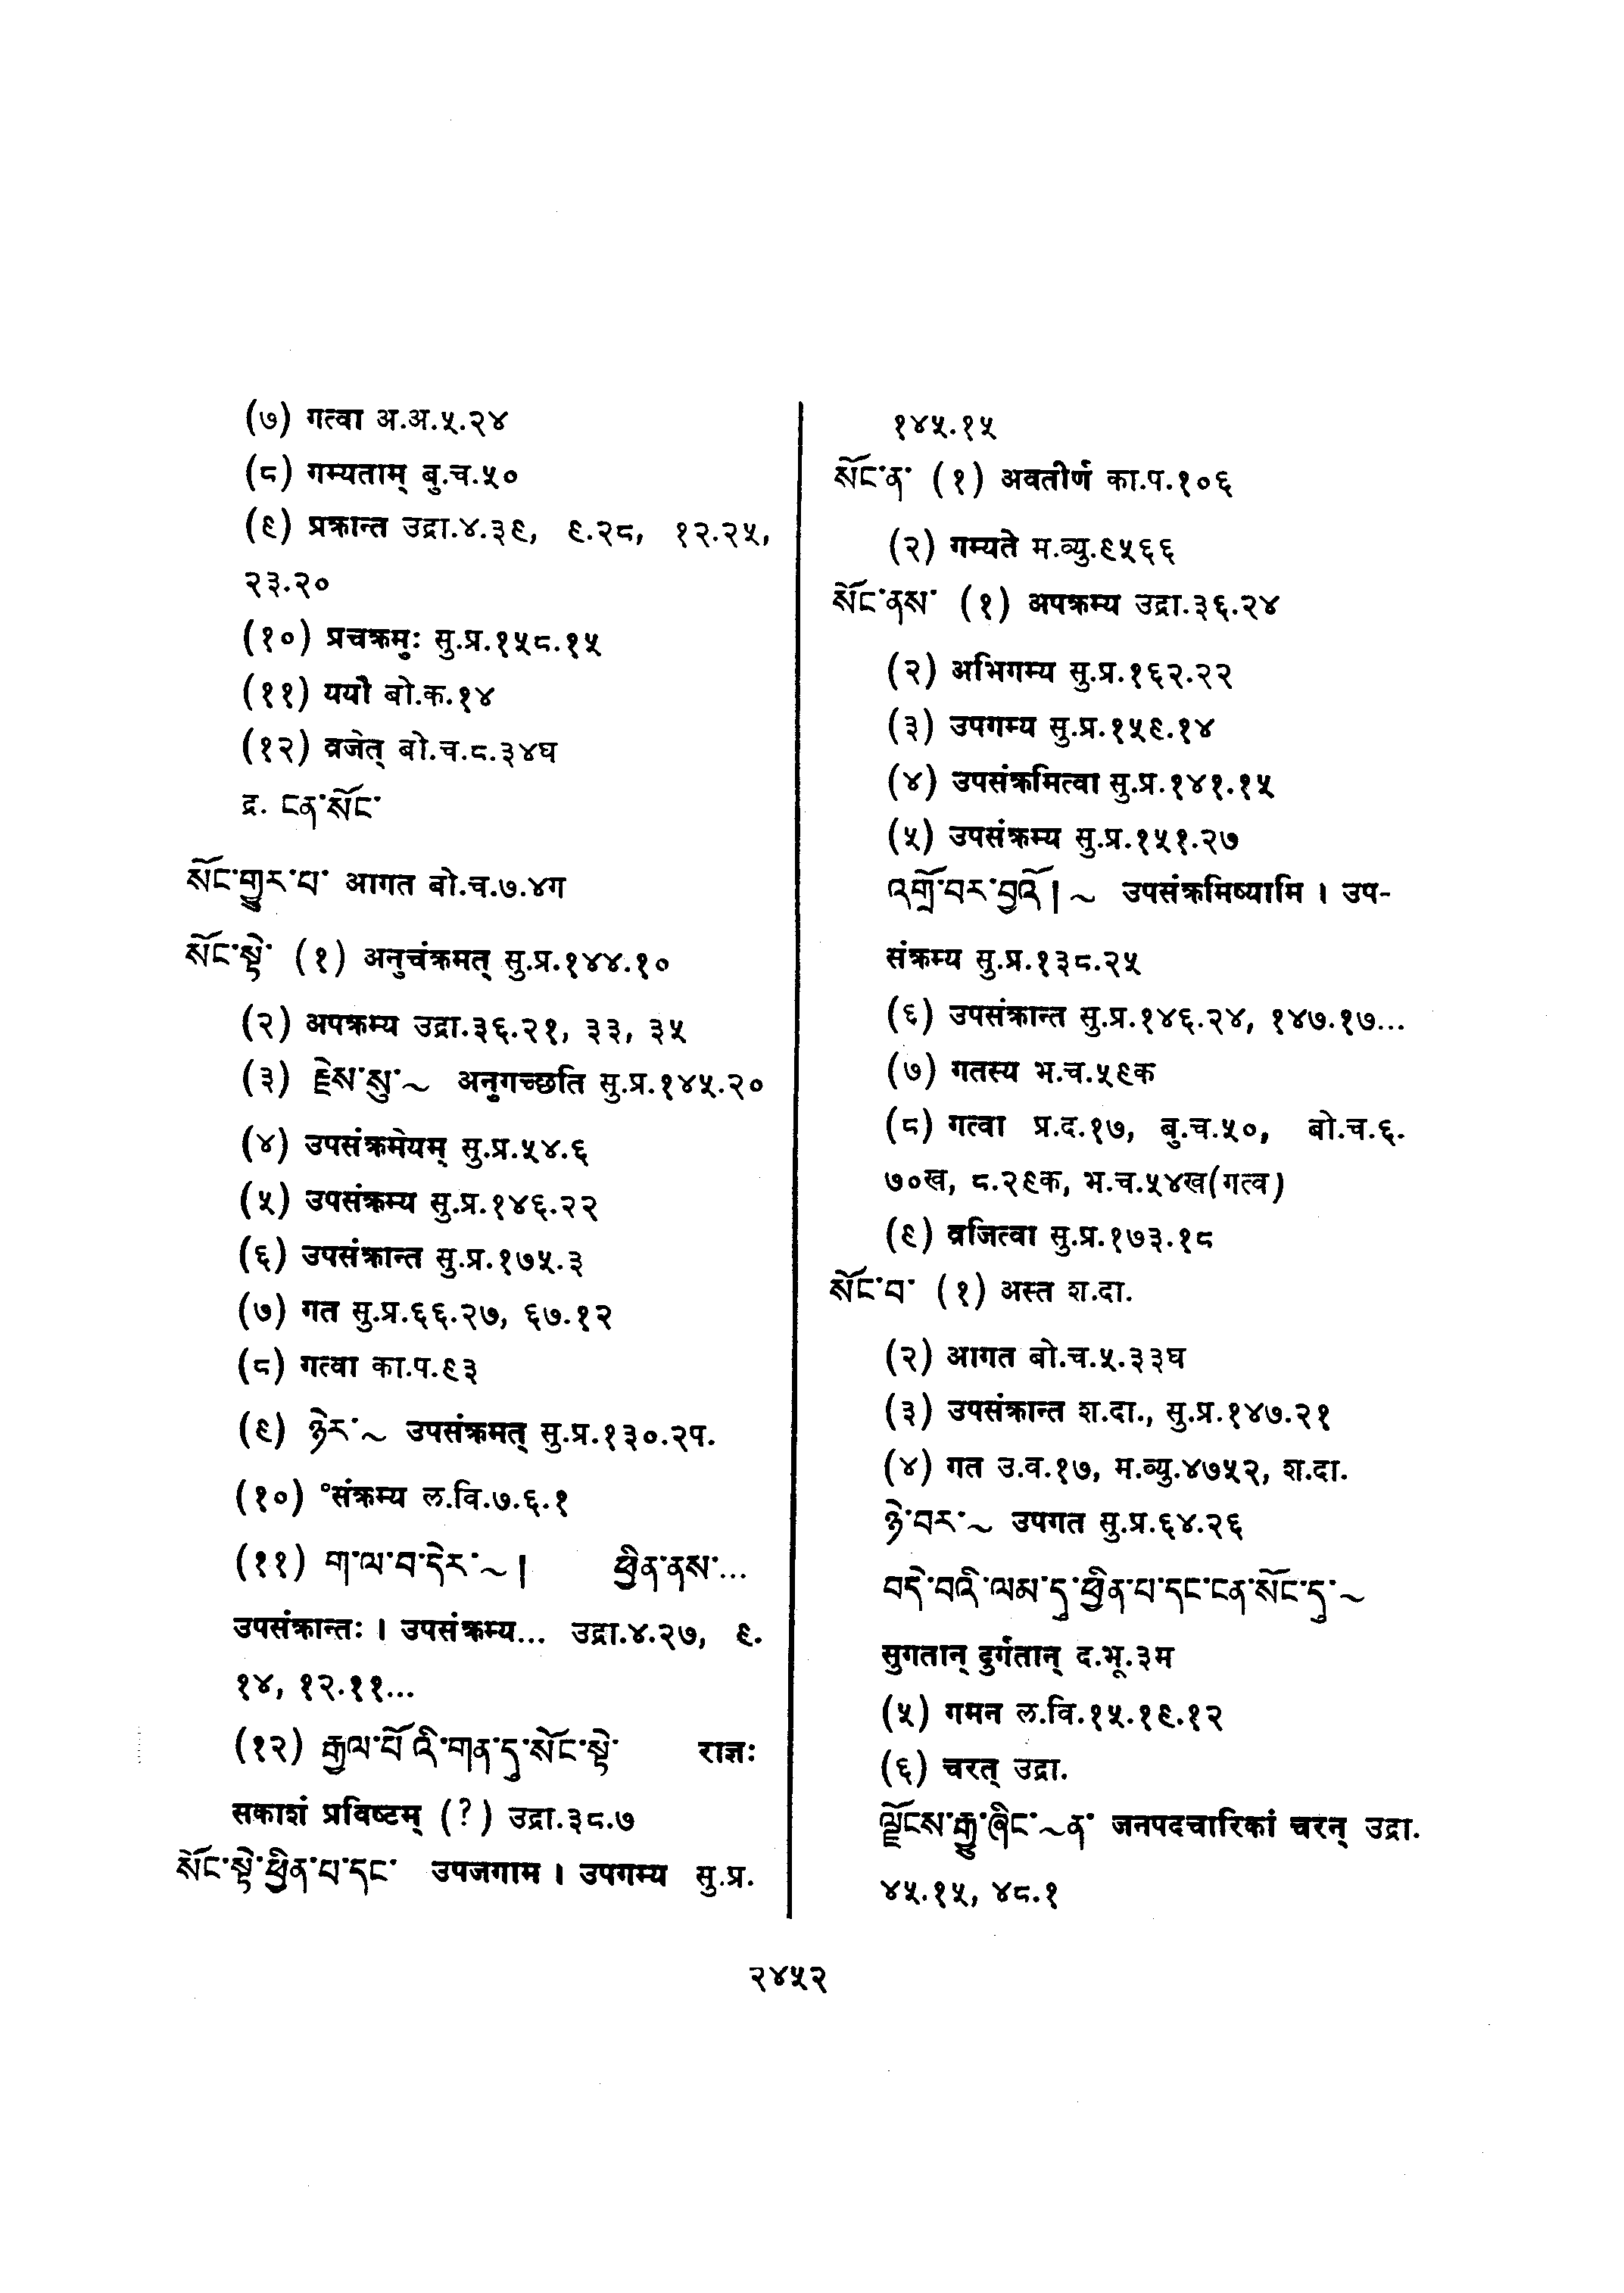 (७) गत्वा अ.अ.५.२४
(८) गम्यताम् बु.च.५०
(९) प्रक्रान्त उद्रा.४.३९, ९.२८, १२.२५,
२३.२०
(१०) प्रचक्रमुः सु.प्र.१५८.१५
(११) ययौ बो.क.१४
(१२) व्रजेत् बो.च.८.३४घ
द्र. ངན་སོང་
སོང་གྱུར་པ་ आगत बो.च.७.४ग
སོང་སྟེ་ (१) अनुचंक्रमत् सु.प्र.१४४.१०
(२) अपक्रम्य उद्रा.३६.२१, ३३, ३५
(३) རྗེས་སུ་~ अनुगच्छति सु.प्र.१४५.२०
(४) उपसंक्रमेयम् सु.प्र.५४.६
(५) उपसंक्रम्य सु.प्र.१४६.२२
(६) उपसंक्रान्त सु.प्र.१७५.३
(७) गत सु.प्र.६६.२७, ६७.१२
(८) गत्वा का.प.९३
(९) ཉེར་~ उपसंक्रमत् सु.प्र.१३०.२प.
(१०) °संक्रम्य ल.वि.७.६.१
(११) ག་ལ་བ་དེར་~། ཕྱིན་ནས་...
उपसंक्रान्तः । उपसंक्रम्य... उद्रा.४.२७, ९.
१४, १२.११...
(१२) རྒྱལ་པོའི་གན་དུ་སོང་སྟེ་ राज्ञः
सकाशं प्रविष्टम् (?) उद्रा.३८.७
སོང་སྟེ་ཕྱིན་པ་དང་ उपजगाम । उपगम्य सु.प्र.
१४५.१५
སོང་ན་ (१) अवतीर्ण का.प.१०६
(२) गम्यते म.व्यु.९५६६
སོང་ནས་ (१) अपक्रम्य उद्रा.३६.२४
(२) अभिगम्य सु.प्र.१६२.२२
(३) उपगम्य सु.प्र.१५९.१४
(४) उपसंक्रमित्वा सु.प्र.१४१.१५
(५) उपसंक्रम्य सु.प्र.१५१.२७
འགྲོ་བར་བྱའོ།~ उपसंक्रमिष्यामि । उप-
संक्रम्य सु.प्र.१३८.२५
(६) उपसंक्रान्त सु.प्र.१४६.२४, १४७.१७...
(७) गतस्य भ.च.५९क
(८) गत्वा प्र.द.१७, बु.च.५०, बो.च.६.
७०ख, ८.२९क, भ.च.५४ख(गत्व)
(९) व्रजित्वा सु.प्र.१७३.१८
སོང་བ་ (१) अस्त श.दा.
(२) आगत बो.च.५.३३घ
(३) उपसंक्रान्त श.दा., सु.प्र.१४७.२१
(४) गत उ.व.१७, म.व्यु.४७५२, श.दा.
ཉེ་བར་~ उपगत सु.प्र.६४.२६
བདེ་བའི་ལམ་དུ་ཕྱིན་པ་དང་ངན་སོང་དུ་~
सुगतान् दुर्गतान् द.भू.३म
(५) गमन ल.वि.१५.१९.१२
(६) चरत् उद्रा.
ལྗོངས་རྒྱུ་ཞིང་~ན་ जनपदचारिकां चरन् उद्रा.
४५.१५, ४८.१
२४५२